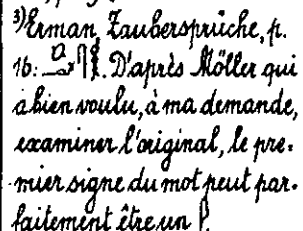 3) Erman, Zaubersprüche, p.
16: . D'après Möller qui
a bien voulu, à ma demande,
examiner l'original, le pre-
mier signe du mot peut par-
faitement être un